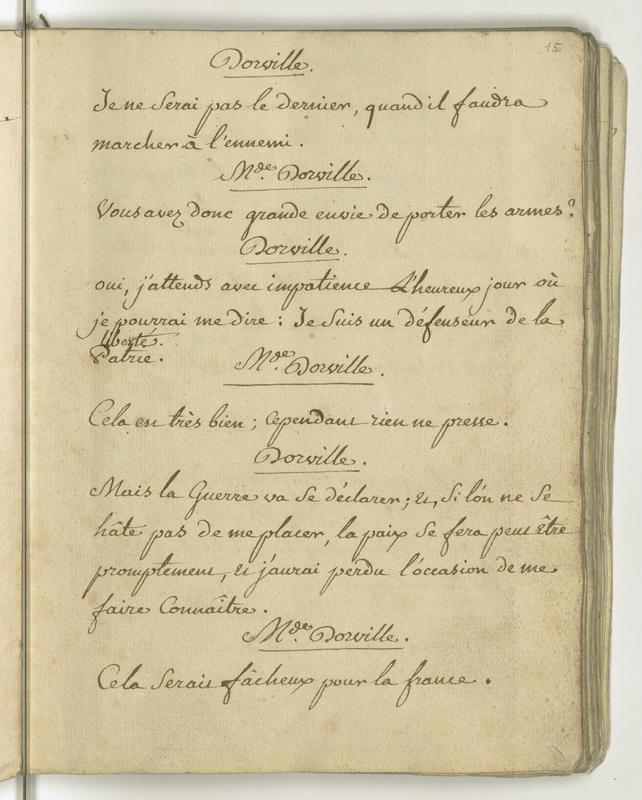 15
Dorville.
Je ne Serai pas le dernier, quand il faudra
marcher à l'ennemi.
Mde. Dorville.
Vous avez donc grande envie de porter les armes?
Dorville.
oui, j'attends avec impatience L'heureux jour où
je pourrai me dire : Je Suis un défenseur de la
liberté.
Patrie.
Mde. Dorville.
Cela est très bien ; cependant rien ne presse.
Dorville.
Mais la Guerre va Se déclarer ; Et, Si l'on ne Se
hâte pas de me placer, la paix Se fera peut Être
promptement, Et j'aurai perdu l'occasion de me
faire Connaître.
Mde. Dorville.
Cela Serait fâcheux pour la france.